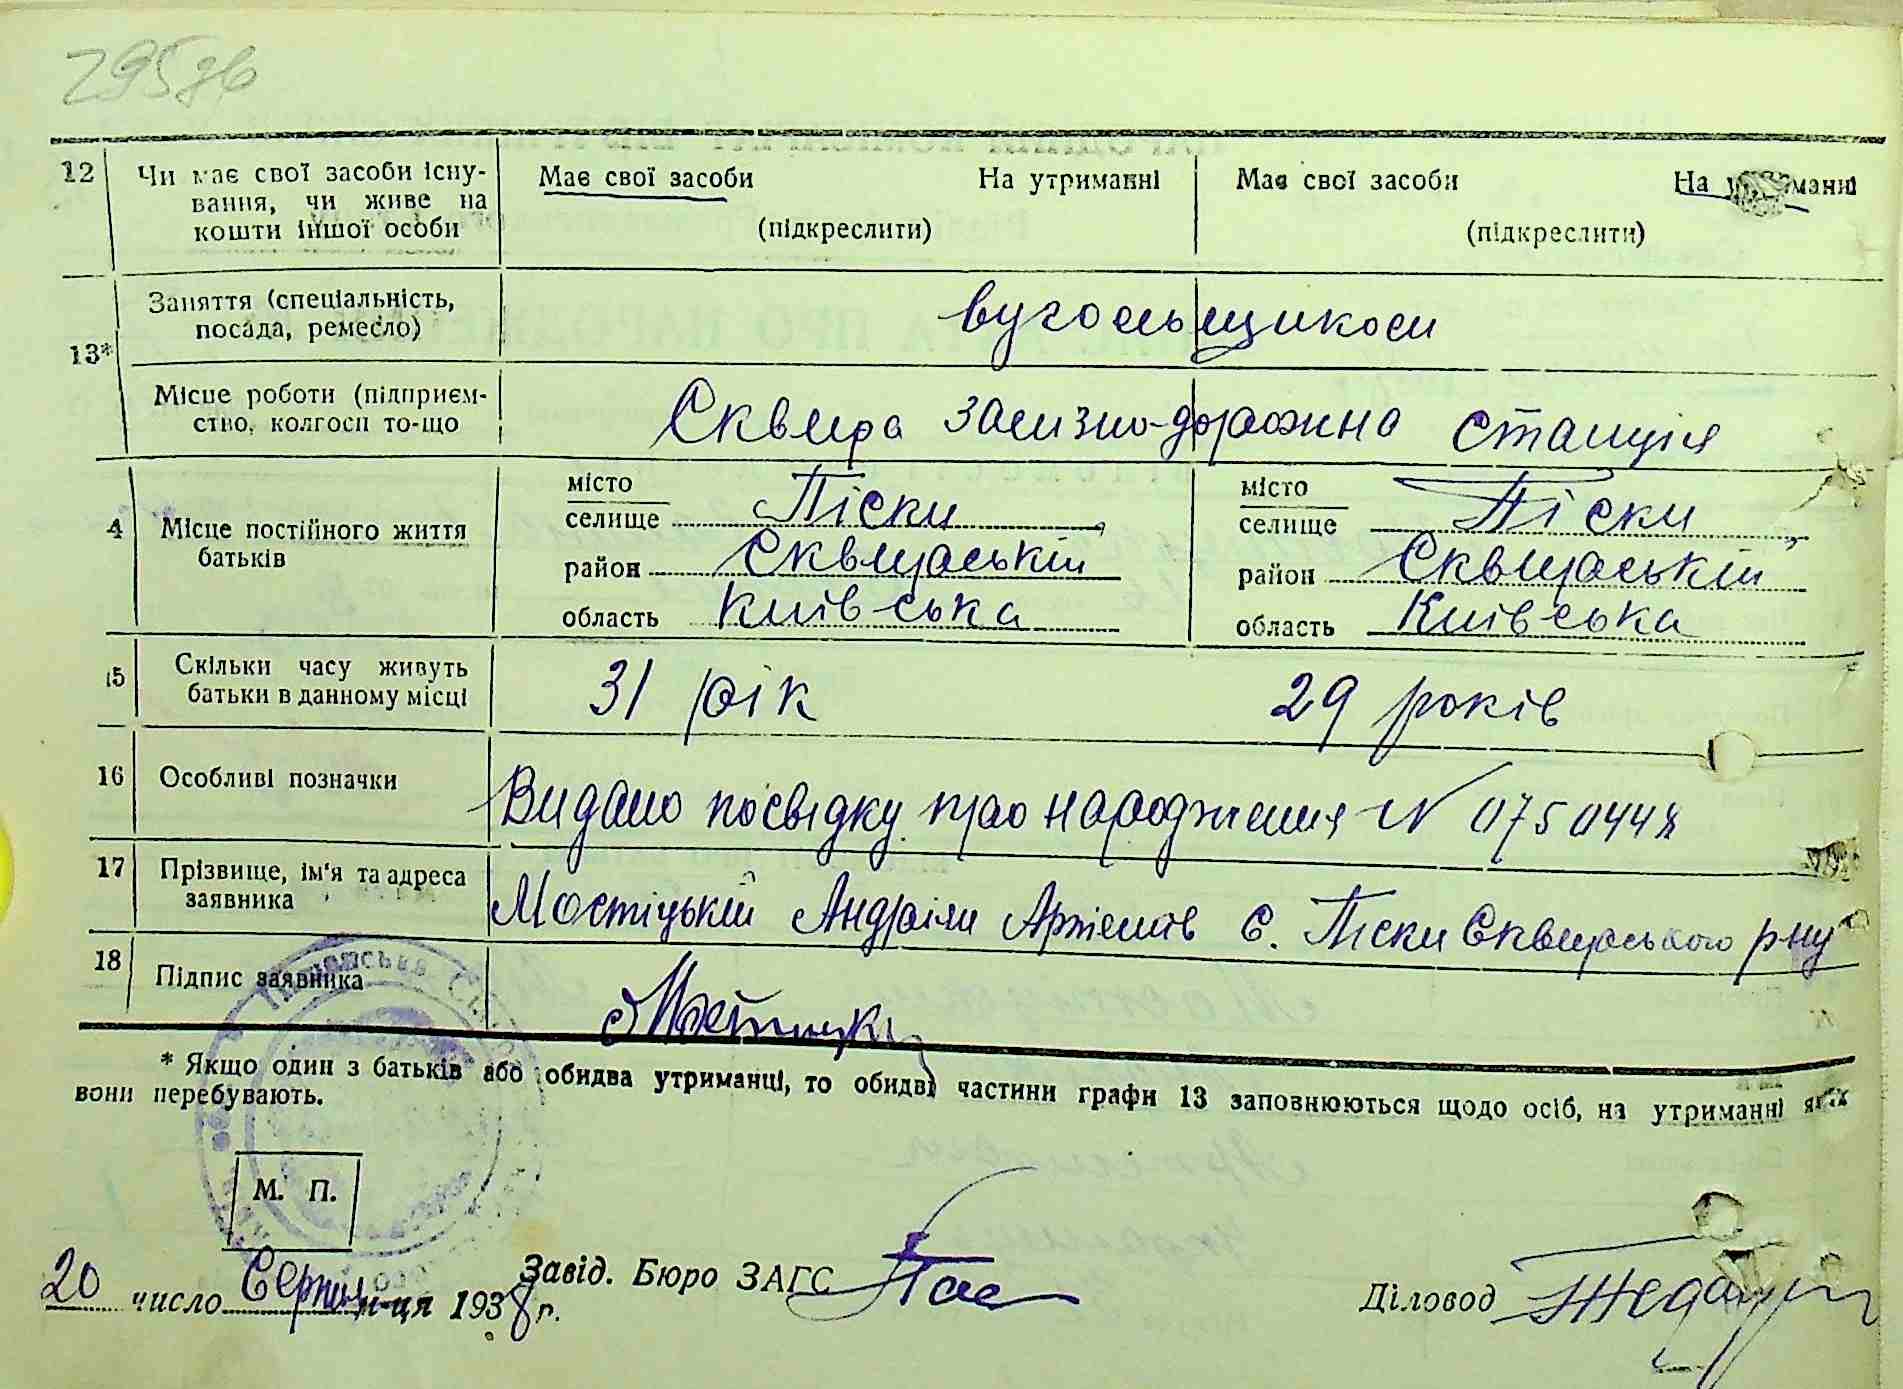 295зв
12 Чи має свої засоби існу-
вання, чи живе на
кошти іншої особи
Має свої засоби На утриманні
(підкреслити)
Має свої засоби На утриманні
(підкреслити)
13* Заняття (спеціальність,
посада, ремесло)
вугольщиком
Місце роботи (підприєм-
ство, колгосп то-що
Сквира зализно-дорожна станція
4 Місце постійного життя
батьків
місто
селище Піски,
район Сквирський
область Київська
місто
селище Піски,
район Сквирський
область Київська
15 Скільки часу живуть
батьки в данному місці
31 рік
29 років
16 Особливі позначки
Видано посвідку про народження № 0750448
17 Прізвище, ім'я та адреса
заявника
Мостіцький Андріян Артемів с. Піски Сквирського р-ну
18 Підпис заявника
* Якщо один з батьків або обидва утриманці, то обидві частини графи 13 заповнюються щодо осіб, на утриманні яких
вони перебувають.
М. П.
20 число Серпня м-ця 1938 г.
Завід. Бюро ЗАГС
Діловод